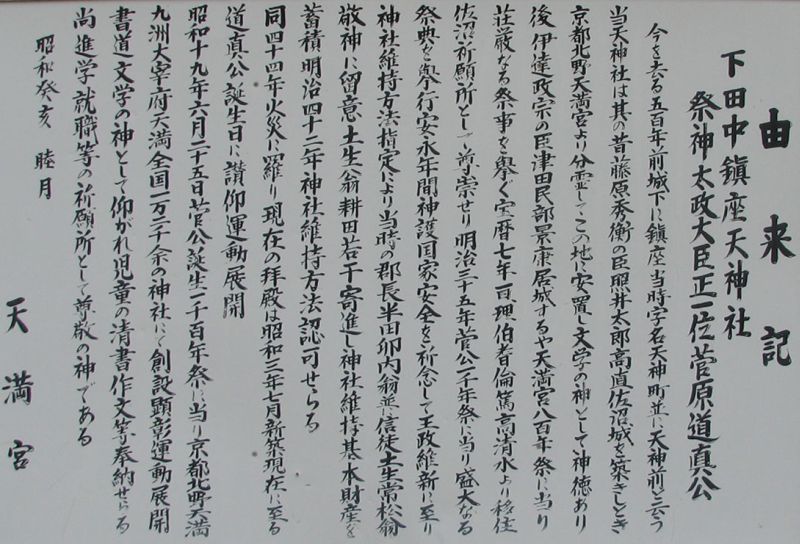 由来記
下田中鎮座天神社
祭神太政大臣正一位菅原道真公
今を去る五百年前城下に鎮座当時字名天神町並に天神前と云う
当天神社は其の昔藤原秀衡の臣照井太郎高直佐沼城を築きしとき
京都北野天満宮より分霊してこの地に安置し文学の神として神徳あり
後伊達政宗の臣津田民部景康居城するや天満宮八百年祭に当り
荘厳なる祭事を挙ぐ宝暦七年亘理伯耆倫篤高清水より移住
佐沼の祈願所として尊崇せり明治三十五年菅公一千年祭に当り盛大なる
祭典を挙行安永年間神護国家安全を祈念して王政維新に至り
神社維持方法指定により当時の郡長半田卯内翁並に信徒土生常松翁
敬神に留意土生翁耕田若干寄進し神社維持基本財産を
蓄積明治四十二年神社維持方法認可せらる
同四十四年火災に罹り現在の拝殿は昭和三年七月新築現在に至る
道真公誕生日に讃仰運動展開
昭和十九年六月二十五日菅公誕生一千百年祭に当り京都北野天満
九洲大宰府天満全国一万二千余の神社にて創設顕彰運動展開
書道文学の神として仰がれ児童の清書作文等奉納せらる
尚進学就職等の祈願所として尊敬の神である
昭和癸亥 睦月
天満宮